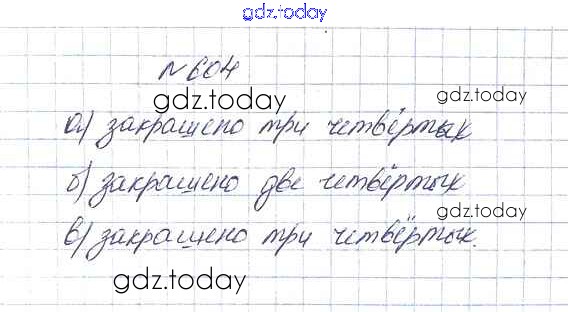 gdz.today
№604
gdz.today
gdz.today
а) закрашено три четвёртых
б) закрашено две четвёртых
gdz.today
в) закрашено три четвёртых.
gdz.today